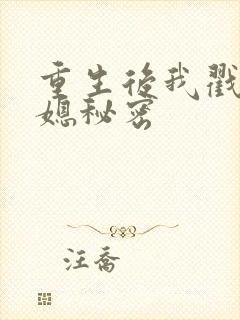 重生后我戳
媳秘密
汪乔